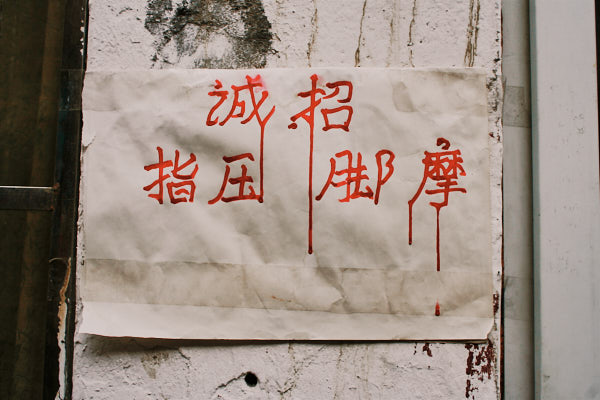 诚招
指压 脚摩